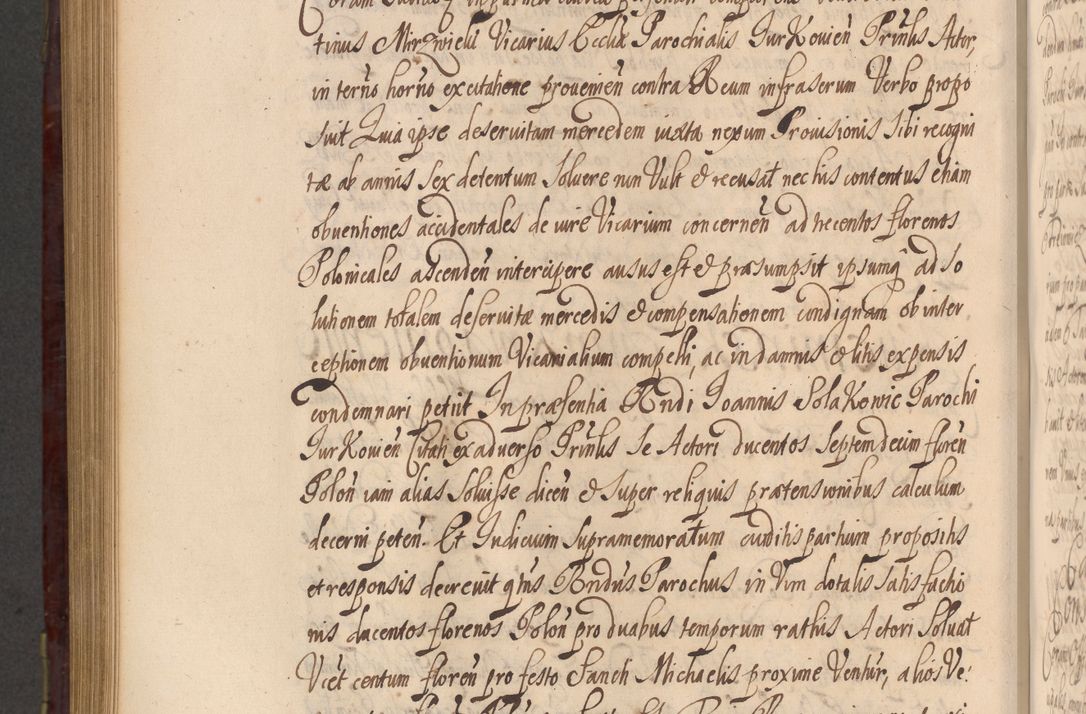 tinus Mirzwicki Vicarius Eccliæ Parochialis Jurkovien̄ Prn̄lis Actor,
in tern̄o horn̄o ex citatione provenien̄ contra Reum infrascrum Verbo propo
suit Quia ipse deservitam mercedem iuxta nexum Provisionis sibi recogni
tæ ab annis sex detentum solvere non Vult et recusat nec his contentus etiam
obventiones accidentales de iure Vicarium concernen̄ ad trecentos florenos
Polonicales ascenden̄ intercipere ausus est et præsumpsit ipsumq́ ad so
lutionem totalem deservitæ mercedis et compensationem condignam ob inter
ceptionem obventionum Vicarialium compelli, ac in damnis et litis expensis
condemnari petiit In præsentia Rn̄di Joannis Solakowic Parochi
Jurkovien̄ Citati ex adverso Prn̄lis se Actori ducentos septemdecim floren̄
Polon̄ iam alias Solvisse dicen̄ et super reliquis prætensionibus calculum
decerni peten̄. Et Iudicium supramemoratum auditis partium propositis
et responsis decrevit qtn̄s Rn̄dus Parochus in Vim totalis satisfactio
nis ducentos florenos Polon̄ pro duabus temporum ratiis Actori Solvat
Vcēt centum floren̄ pro festo Sancti Michaelis proxime Ventur̄, alios Ve: